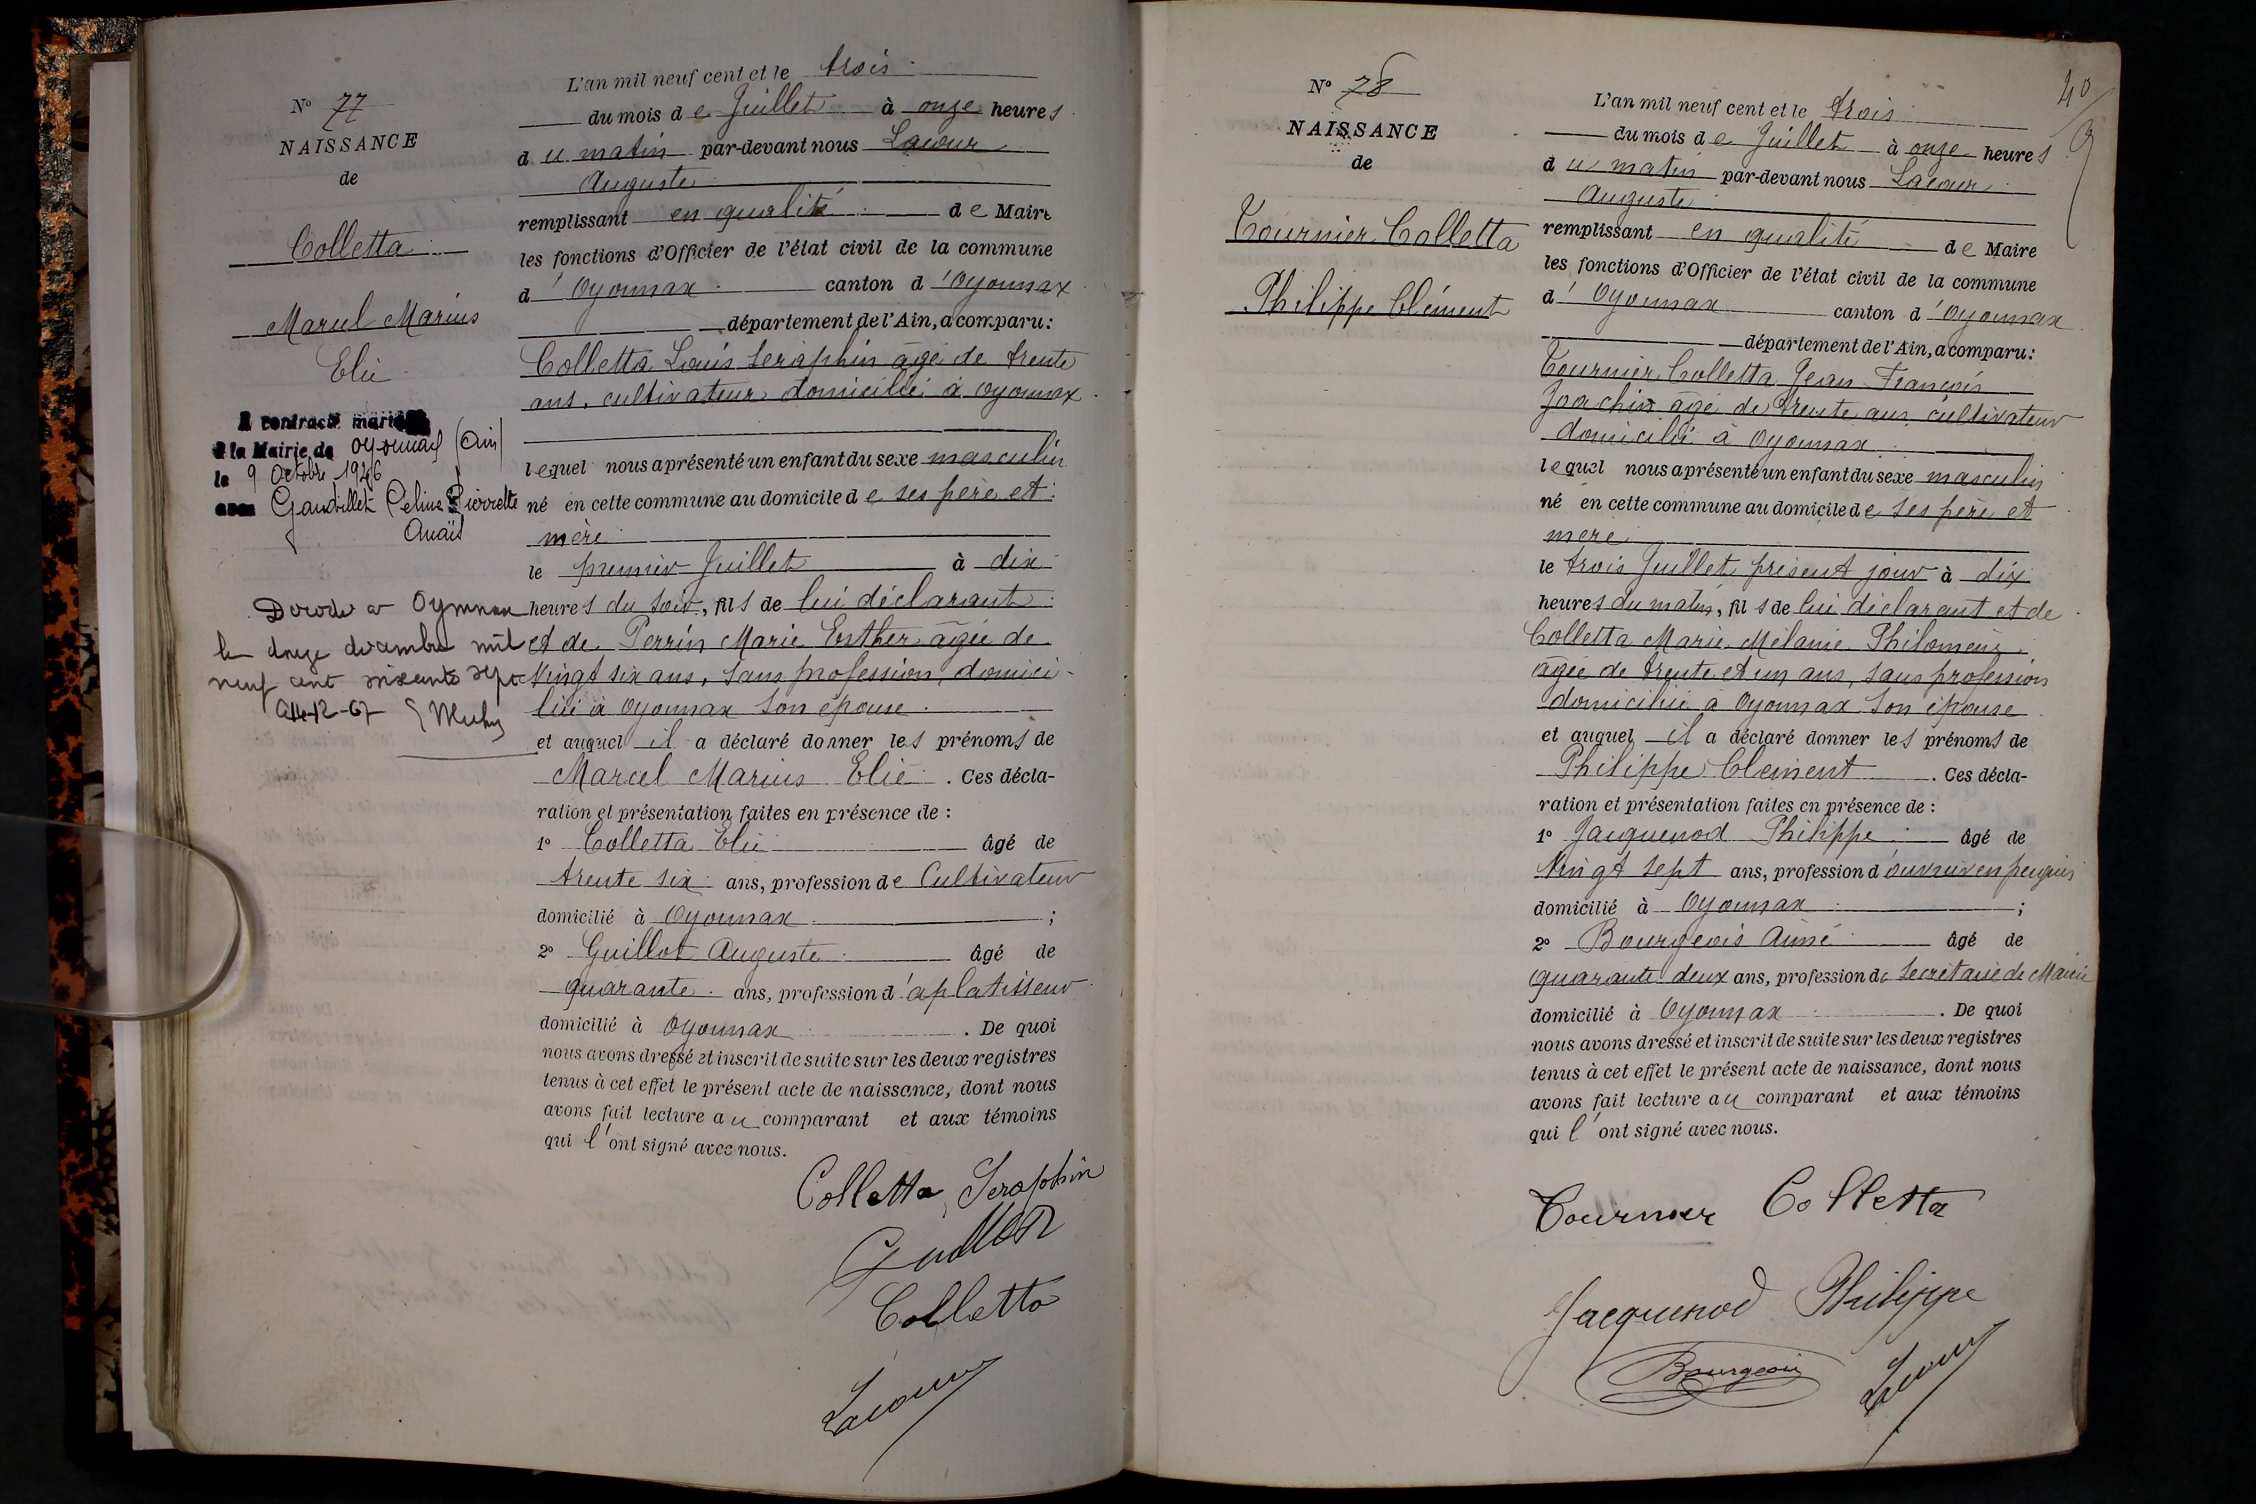 N° 77
NAISSANCE
de
Colletta
Marcel Marius
Elie
A contracté mariage
à la Mairie de Oyonnax (Ain)
le 9 Octobre 1926
avec Gaudillet Celine Pierrette
Anaïs
Décédé à Oyonnax
le douze décembre mil
neuf cent soixante sept
14-12-67
L'an mil neuf cent et le trois
du mois de Juillet à onze heures
du matin par-devant nous Lacour
Auguste
remplissant en qualité de Maire
les fonctions d'Officier de l'état civil de la commune
d'Oyonnax canton d'Oyonnax
département de l'Ain, a comparu:
Colletta Louis Séraphin âgé de trente
ans, cultivateur domicilié à Oyonnax
lequel nous a présenté un enfant du sexe masculin
né en cette commune au domicile de ses père et
mère
le premier Juillet à dix
heures du soir, fils de lui déclarant
et de Perrin Marie Esther âgée de
vingt six ans, sans profession, domici-
liée à Oyonnax son épouse
et auquel il a déclaré donner les prénoms de
Marcel Marius Elie. Ces décla-
ration et présentation faites en présence de :
1° Colletta Elie âgé de
trente six ans, profession de Cultivateur
domicilié à Oyonnax ;
2° Guillot Auguste âgé de
quarante ans, profession d'aplatisseur
domicilié à Oyonnax. De quoi
nous avons dressé et inscrit de suite sur les deux registres
tenus à cet effet le présent acte de naissance, dont nous
avons fait lecture au comparant et aux témoins
qui l'ont signé avec nous.
Colletta Seraphin
Guillot
Colletta
Lacour
40
N° 78
NAISSANCE
de
Tournier Colletta
Philippe Clément
L'an mil neuf cent et le trois
du mois de Juillet à onze heures
du matin par-devant nous Lacour
Auguste
remplissant en qualité de Maire
les fonctions d'Officier de l'état civil de la commune
d'Oyonnax canton d'Oyonnax
département de l'Ain, a comparu:
Tournier Colletta Jean François
Joachin âgé de trente ans, cultivateur
domicilié à Oyonnax
lequel nous a présenté un enfant du sexe masculin
né en cette commune au domicile de ses père et
mère
le trois Juillet présent jour à dix
heures du matin, fils de lui déclarant et de
Colletta Marie Mélanie Philomène
âgée de trente et un ans, sans profession
domiciliée à Oyonnax son épouse
et auquel il a déclaré donner les prénoms de
Philippe Clément. Ces décla-
ration et présentation faites en présence de :
1° Jacquenod Philippe âgé de
vingt sept ans, profession d'ouvrier en peignes
domicilié à Oyonnax ;
2° Bourgeois Aimé âgé de
quarante deux ans, profession de secrétaire de Mairie
domicilié à Oyonnax. De quoi
nous avons dressé et inscrit de suite sur les deux registres
tenus à cet effet le présent acte de naissance, dont nous
avons fait lecture au comparant et aux témoins
qui l'ont signé avec nous.
Tournier Colletta
Jacquenod Philippe
Bourgeois
Lacour